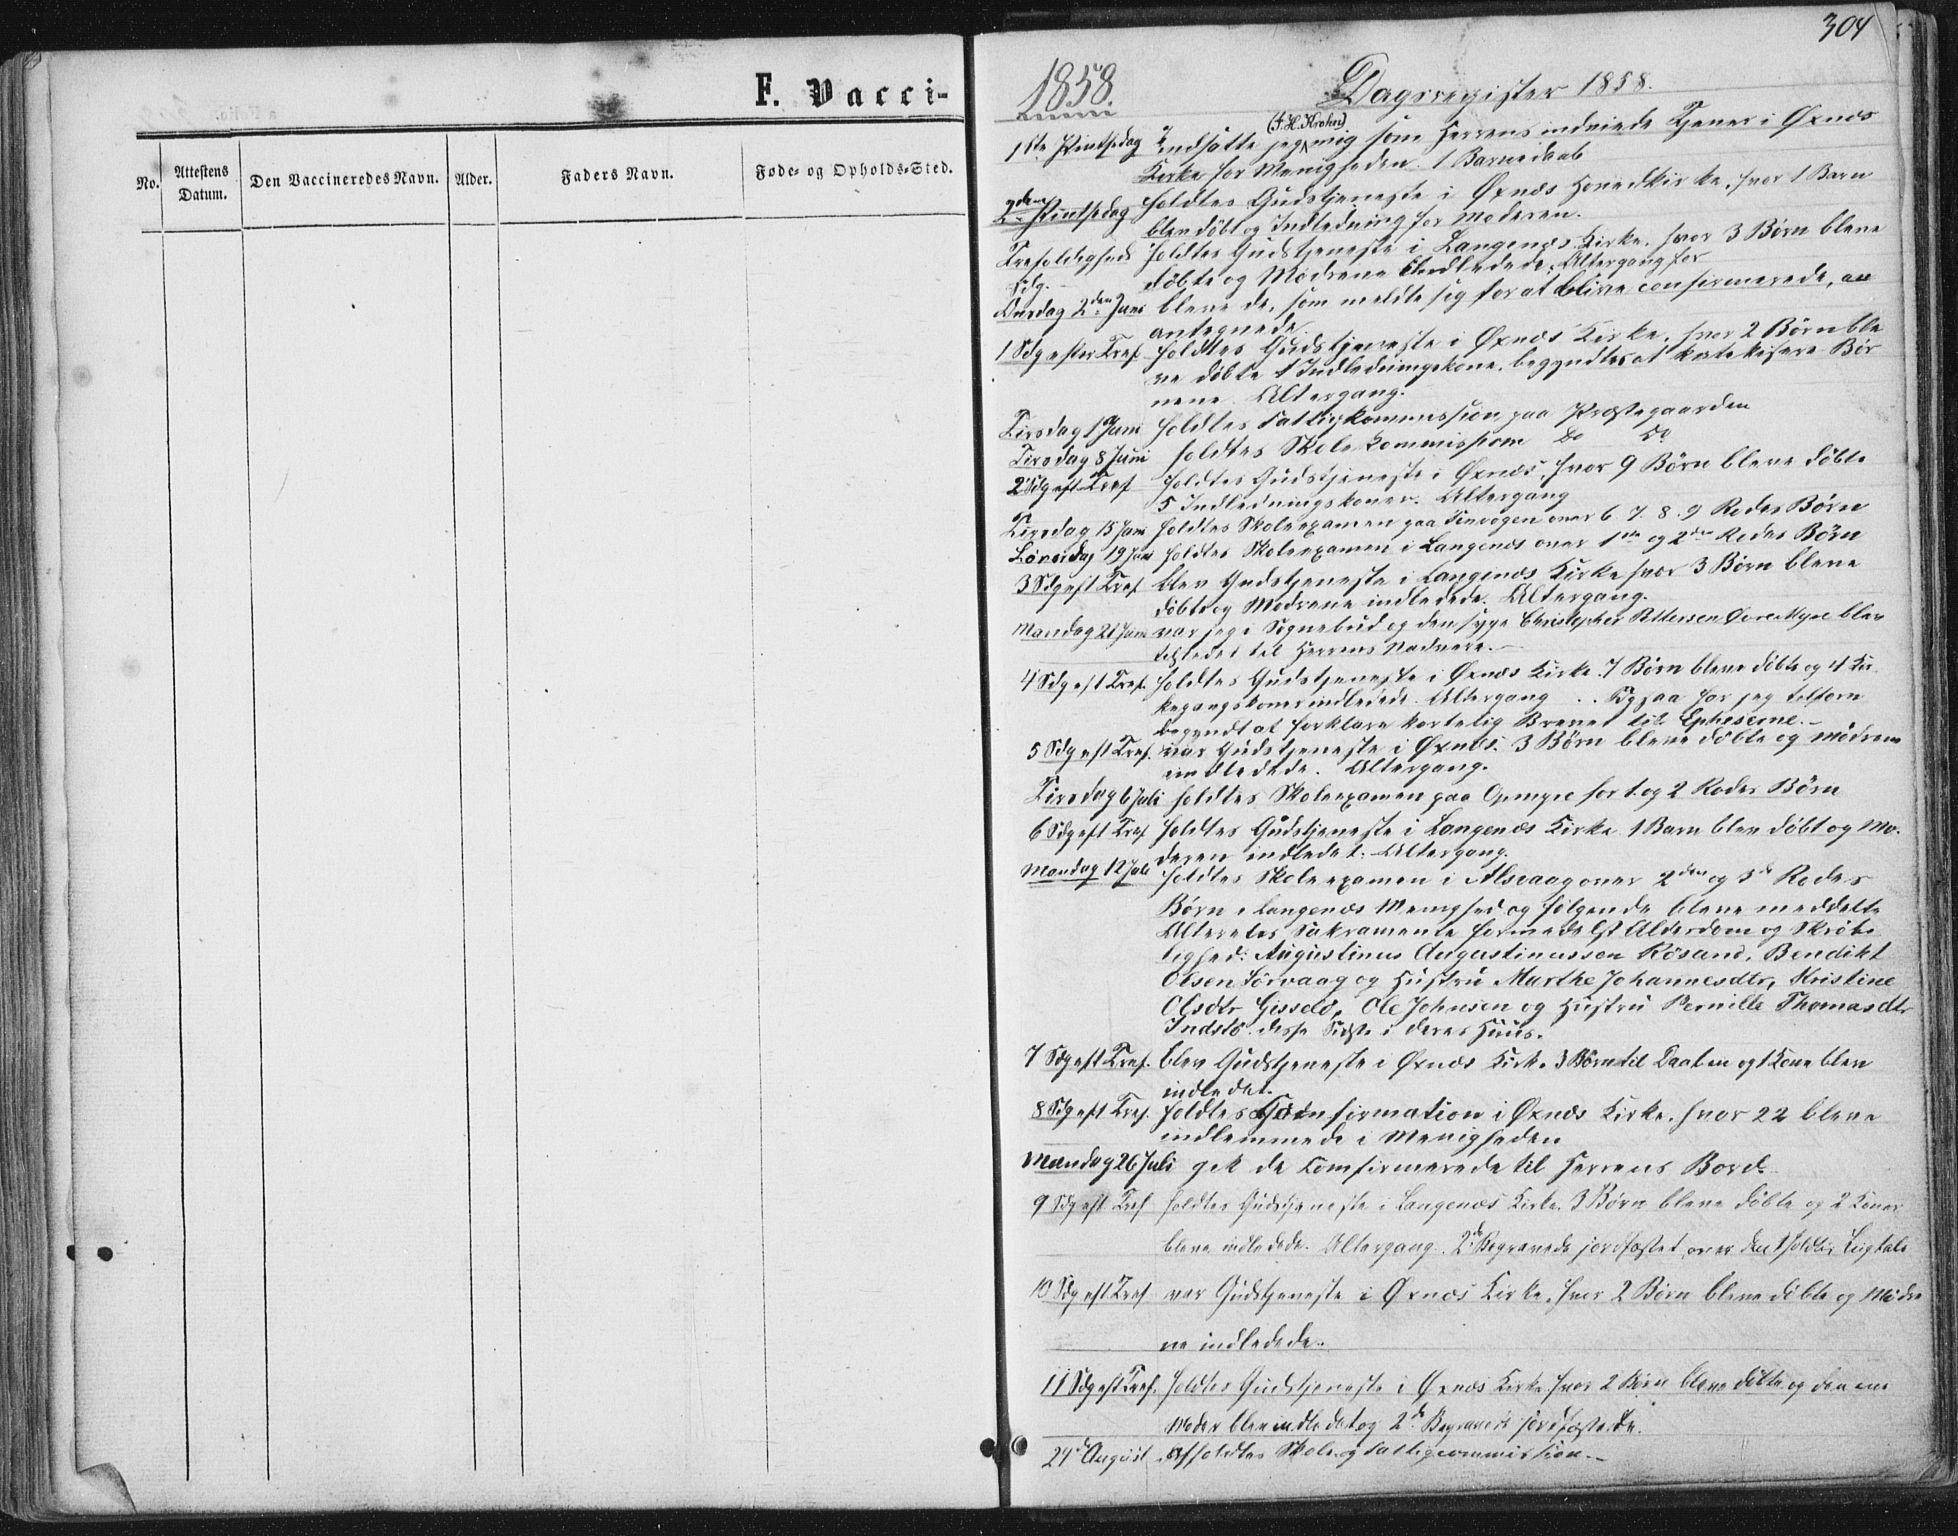 F. Vacci-
No.
Attestens Datum.
Den Vaccineredes Navn.
Alder.
Faders Navn.
Føde- og Opholds-Sted.
304
1858.
Dagsregister 1858.
(F. H. Krohn)
1ste Pintsedag Indsatte jeg mig som Herrens indviede Tjener i Øxnæs
Kirke for Menigheden. 1 Barnedaab
2den Pintsedag holdtes Gudstjeneste i Øxnæs Hovedkirke, hvor 1 Barn
blev døbt og Indledning for Moderen.
Trefoldigheds holdtes Gudstjeneste i Langenæs Kirke, hvor 3 Børn bleve
Sdg. døbte og Mødrene indledede, Altergang for
Onsdag 2den Juni bleve de, som meldte sig for at blive confirmerede, an
antegnede.
1 Sdg efter Tref. holdtes Gudstjeneste i Øxnæs Kirke, hvor 2 Børn ble
ve døbte 1 Indledningskone, begyndtes at katekisere Bør
nene. Altergang.
Tirsdag Juni holdtes Fattigkommission paa Præstegaarden
Tirsdag 8 Juni holdtes Skolekommission Do Do
2 Sdg eft Tref holdtes Gudstjeneste i Øxnæs, hvor 9 Børn bleve døbte
5 Indledningskoner. Altergang
Tirsdag 15 Juni holdtes Skoleexamen paa Tinvogen over 6 7. 8. 9 Rodes Børn
Løverdag 19 Juni holdtes Skoleexamen i Langenæs over 1ste og 2den Rodes Børn
3 Sdg eft Tref blev Gudstjeneste i Langenæs Kirke hvor 3 Børn bleve
døbte og Mødrene indledede. Altergang.
Mandag 21 Juni var jeg i Sognebud og den syge Christopher Pettersen Øvre Myre blev
stedet til Herrens Nadvere.
4 Sdg eft Tref. holdtes Gudstjeneste i Øxnæs Kirke. 7 Børn bleve døbte og 4 Kir
kegangskoner indledede. Altergang . . paa har jeg
begyndt at forklare kortelig Brevet til Epheserne.
5 Sdg eft Tref. var Gudstjeneste i Øxnæs. 3 Børn bleve døbte og mødrene
indledede. Altergang.
Tirsdag 6 Juli holdtes Skoleexamen paa Opmyre for 1. og 2 Rodes Børn
6 Sdg eft Tref holdtes Gudstjeneste i Langenæs Kirke 1 Barn blev døbt og Mo-
deren indledet. Altergang.
Mandag 12 Juli holdtes Skoleexamen i Alsvaag over 2den og 3de Rodes
Børn i Langenæs Menighed og følgende bleve meddelte
Alterets Sakramente formedelst Alderdom og Skrøbe
lighed: Augustinus Augustinussen Røsand, Bendikt
Olsen Sørvaag og Hustru Marthe Johannesdtr, Kristine
Olsdtr Gisselø, Ole Johnsen og Hustru Pernille Thomasdtr
Indstø. disse Sidste i deres Huus.
7 Sdg eft Tref. blev Gudstjeneste i Øxnæs Kirke. 3 Børn til Daaben og 1 Kone blev
indledet.
8 Sdg eft Tref. holdtes Confirmation i Øxnæs Kirke, hvor 22 bleve
indlemmede i Menigheden
Mandag 26 Juli gik de Confirmerede til Herrens Bord.
9 Sdg eft Tref holdtes Gudstjeneste i Langenæs Kirke. 3 Børn bleve døbte og 2 Koner
bleve indledede. Altergang. 2de Begravede jordfæstet, over den 1 holdtes Liigtale
10 Sdg eft Tref var Gudstjeneste i Øxnæs Kirke, hvor 2 Børn bleve døbte og Mødre
ne indledede.
11 Sdg eft Tref. holdtes Gudstjeneste i Øxnæs Kirke hvor 2 Børn bleve døbte og den ene
Moder blev indledet og 2de Begravede jordfæstede.
24de August afholdtes Skole og Fattigcommission.